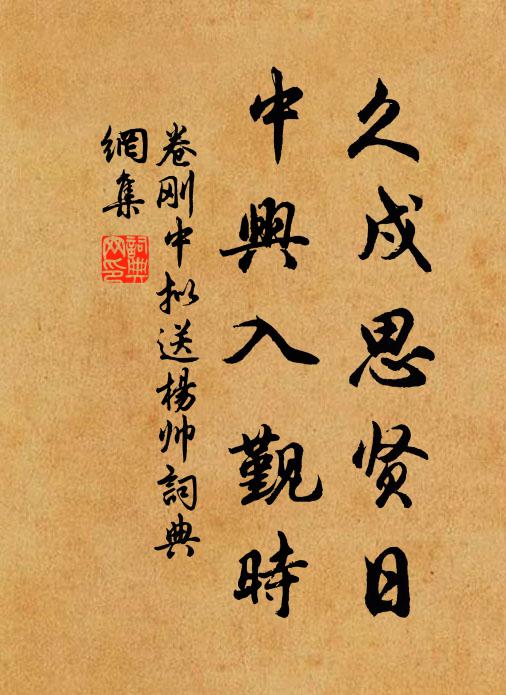 久戍思贤日
中興入覲時
卷刚中拟送楊帅詞典
網集
詞典
网印